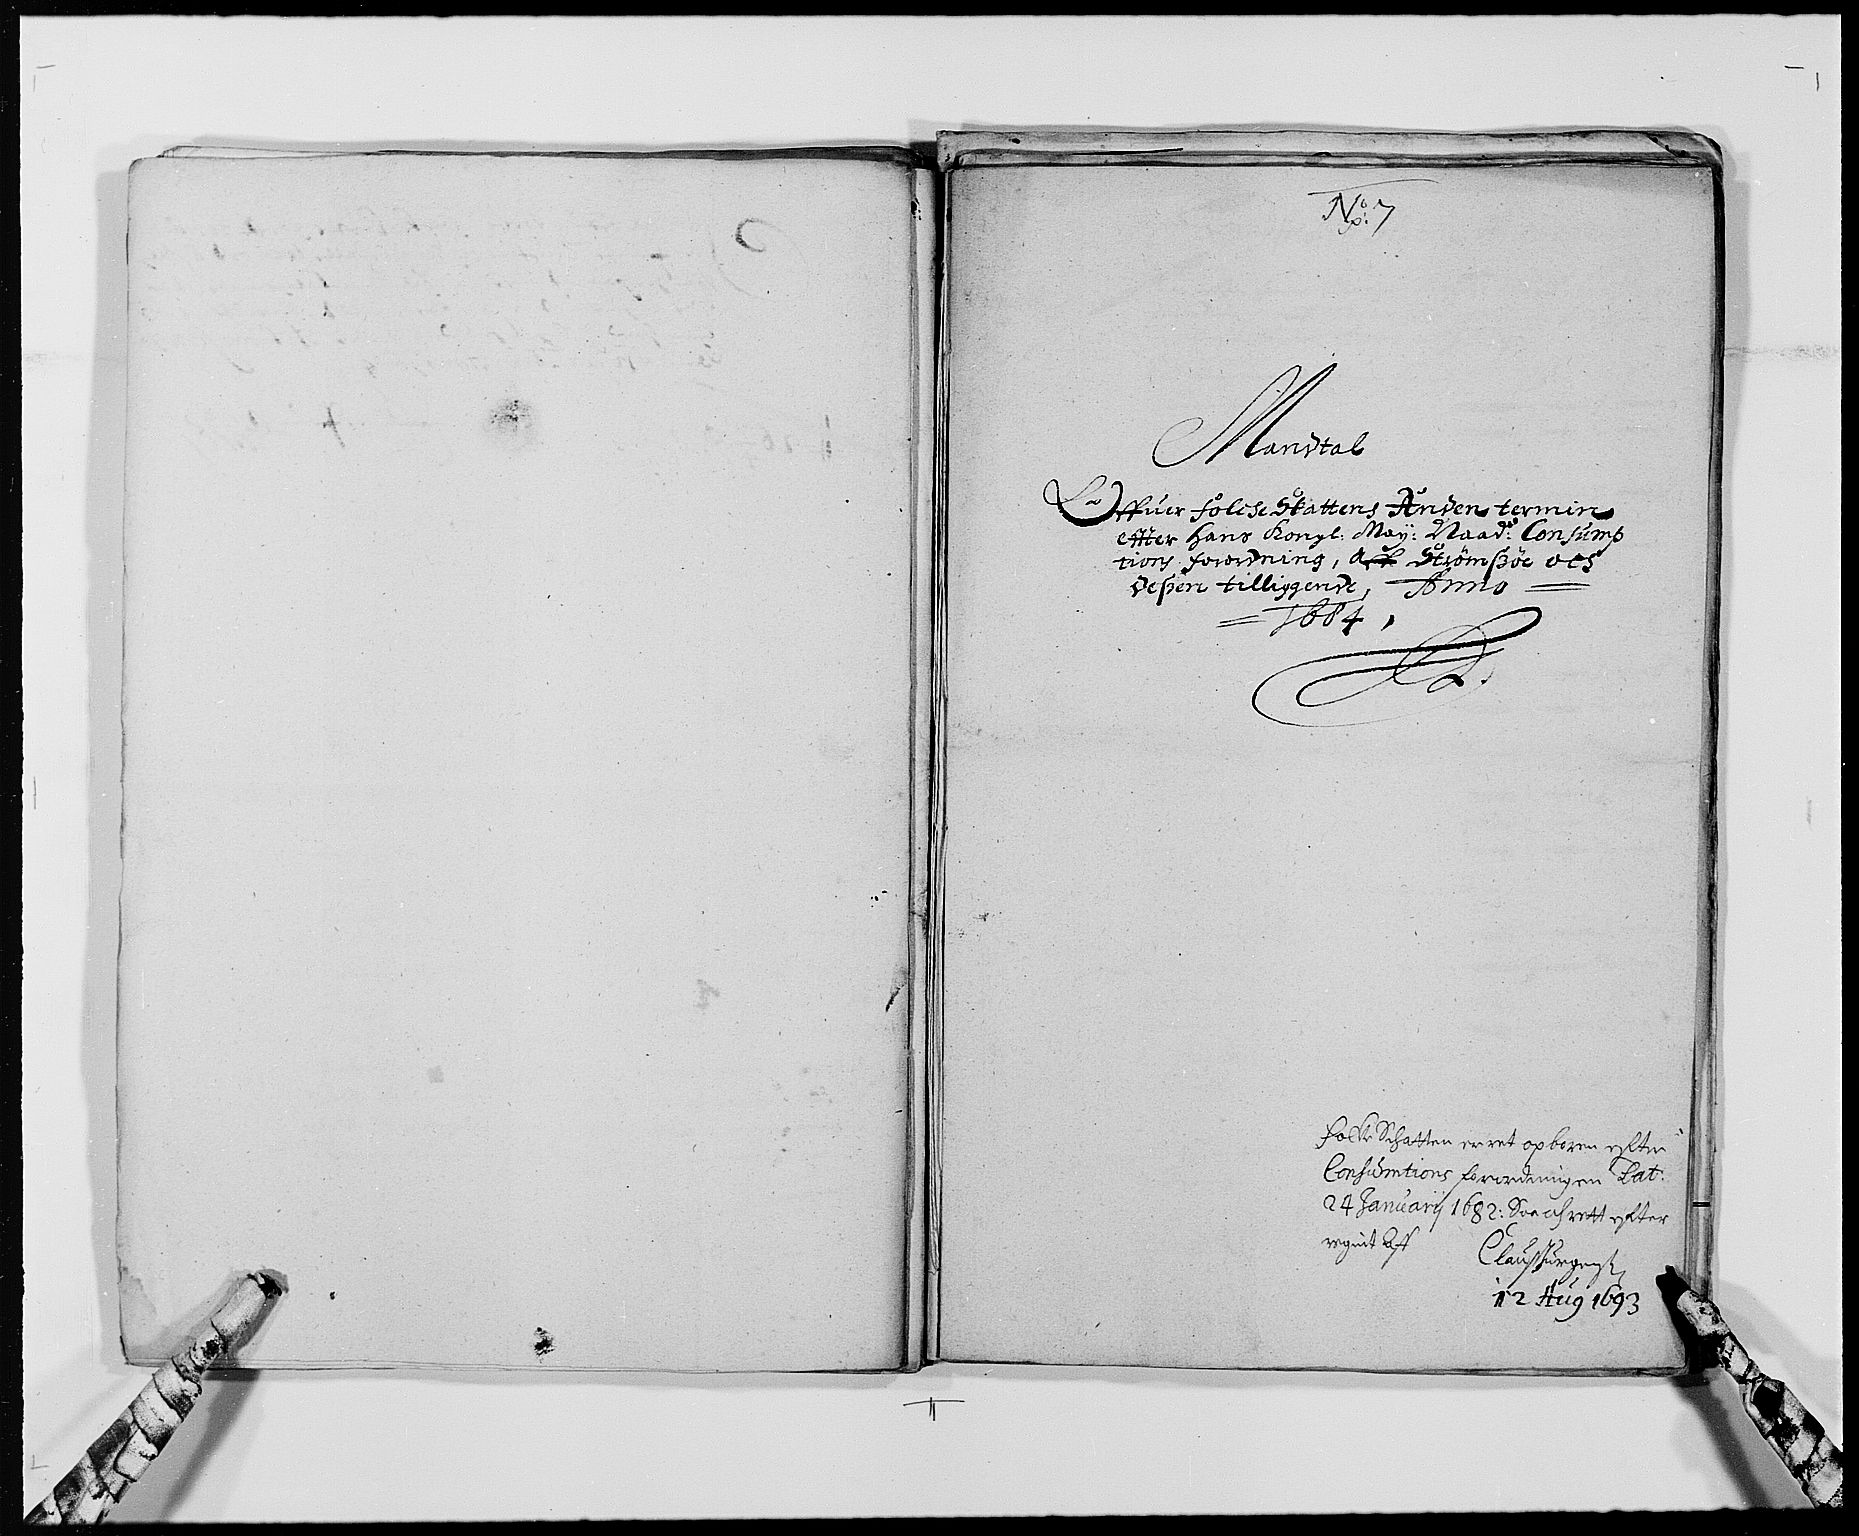 No: 7
Mandtal
Offuer folche Skattens Anden termin
effter Hans Kongl: May: Naad: Consump
tions forordning, Aff Strømsøe och
deßen tilliggende, Anno
1684,
Folke Schatten er ret opboren effter
Consumtions forordningen Dat:
24 January 1682: Soe rett effter
regnit Aff
Claus Jürgens
12 Aug 1693